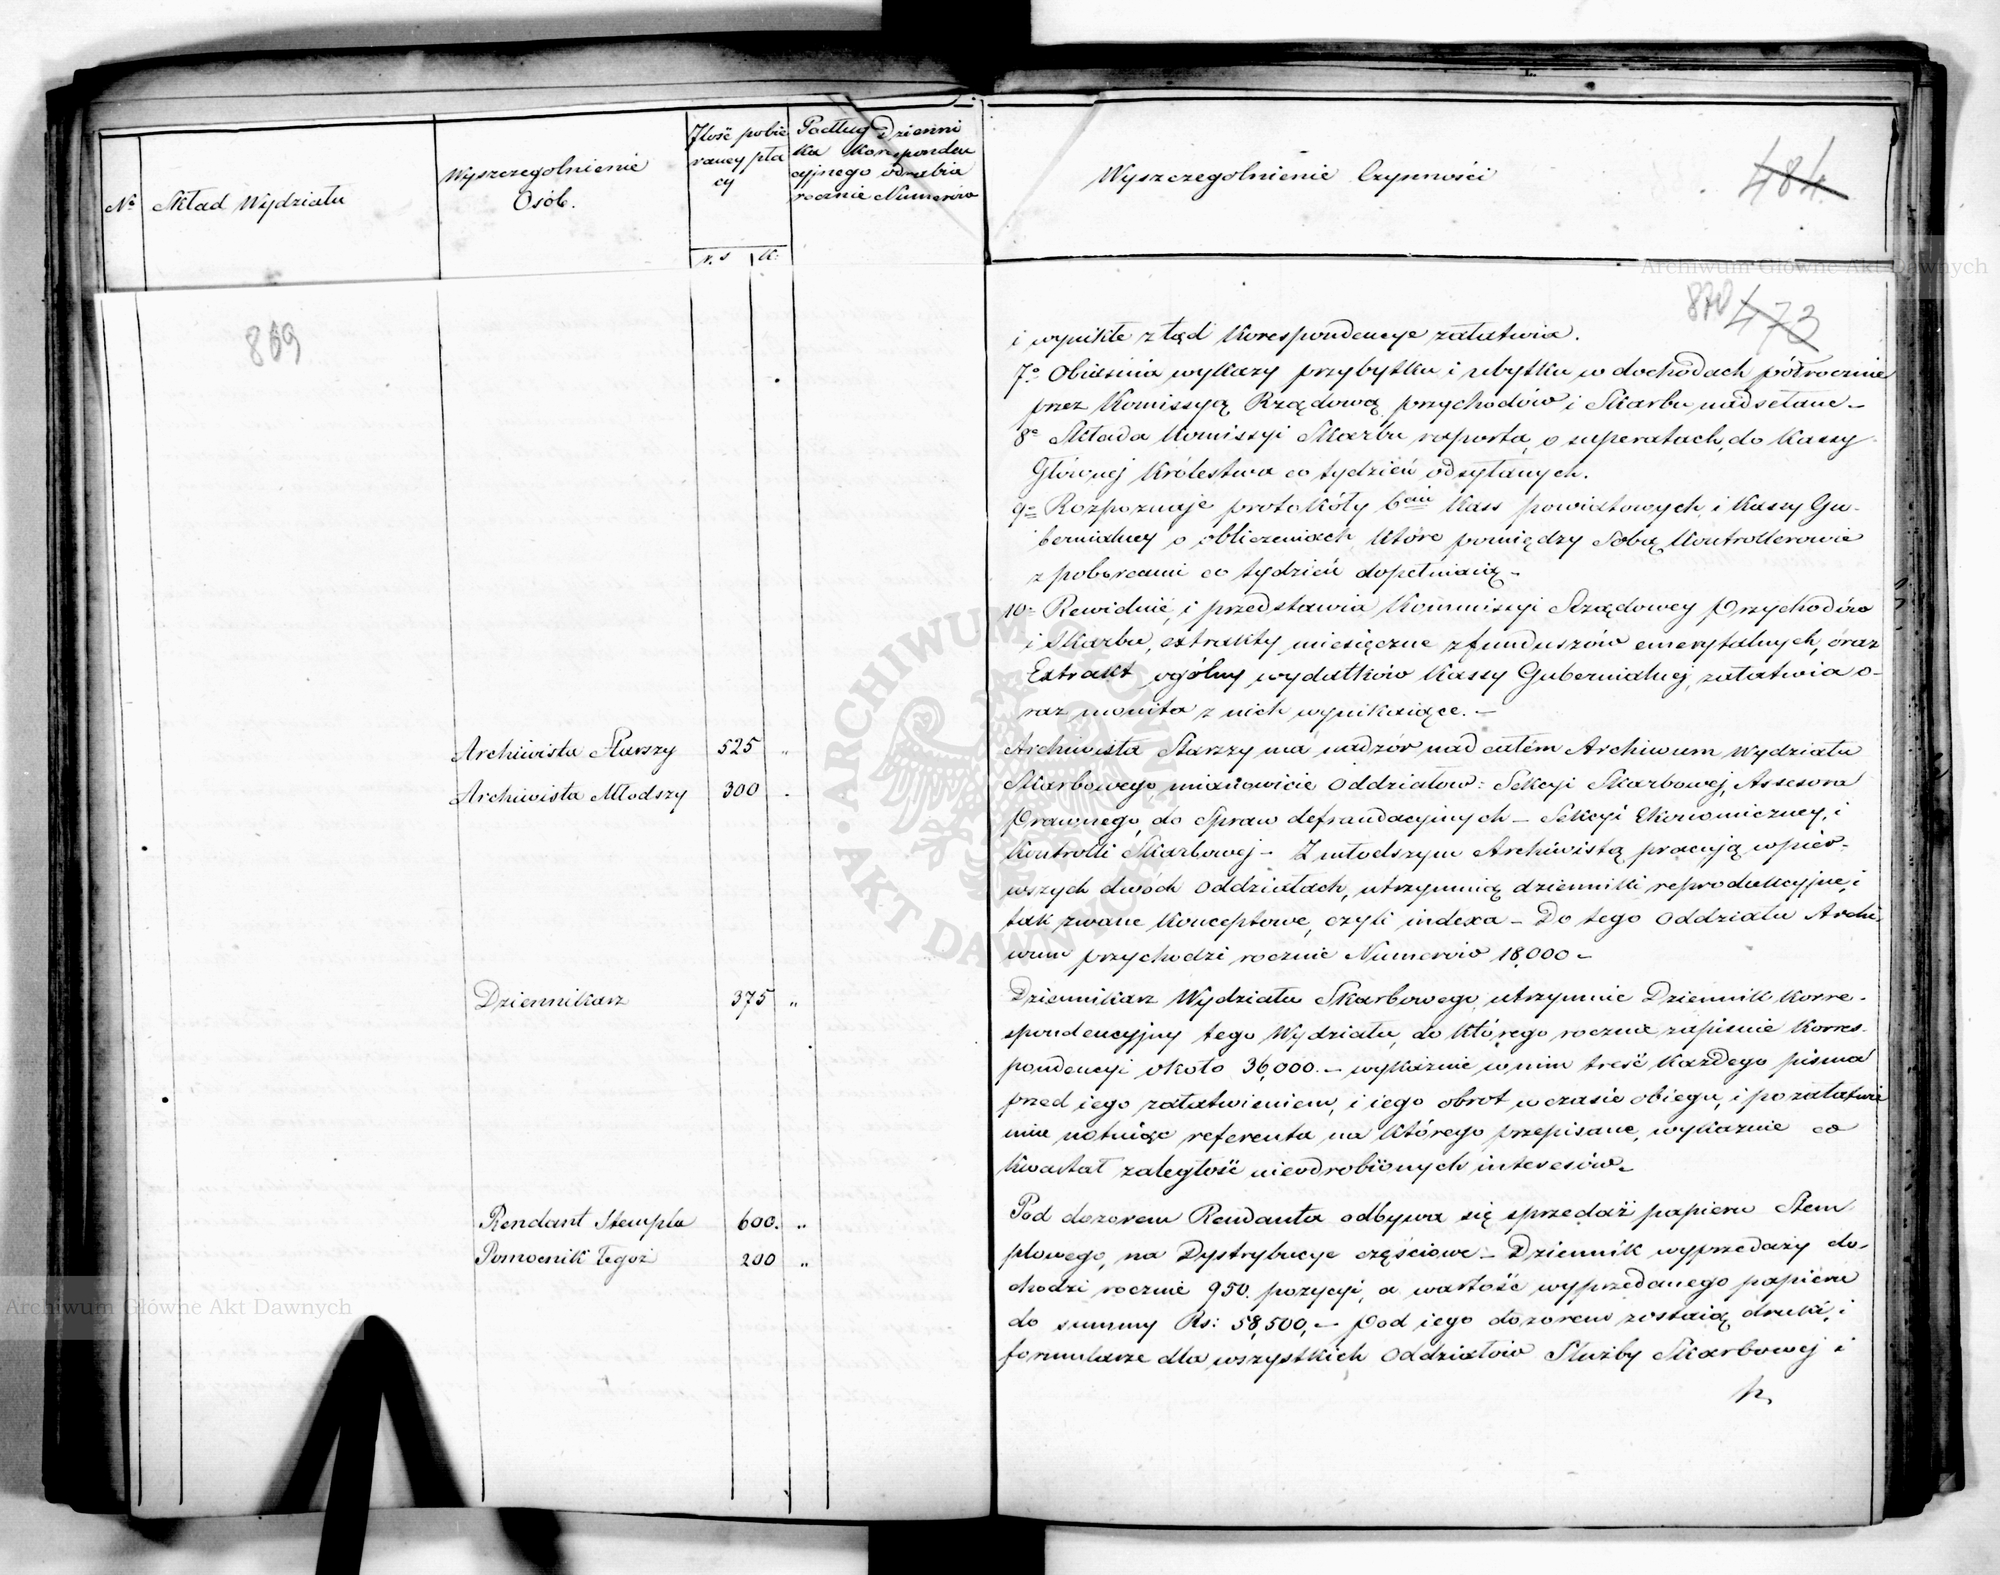 Nº
Skład Wydziału
Wyszczegolnienie
Osób.
Ilość pobie
raney pła
cy
r. s k.
Podług Dzienni
ka Koresponden
cyjnego odrabia
rocznie Numerów
Wyszczegolnienie Czynności
484
869
870 473
i wynikłe z tąd Korespondencye załatwia.
7º Obiasnia wykazy przybytku i ubytku w dochodach półrocznie
przez Komissyą Rządową przychodów i Skarbu nadsełane –
8º Składa Komissyi Skarbu raporta, o superatach, do Kassy
Głównej Królestwa co tydzień odsyłanych.
9º Rozpoznaje protokóły 6ciu Kass powiatowych, i Kassy Gu-
bernialney o obliczeniach które pomiędzy Sobą Kontrollerowie
z poborcami co tydzień dopełniaią –
10º Rewiduie, i przedstawia Kommissyi Rządowey Przychodów
i Skarbu, extrakty miesięczne z funduszów emerytalnych, oraz
Extrakt ogólny wydatków Kassy Gubernialnej, załatwia o-
raz monita z nich wynikaiące. –
Archiwista Starszy 525 „
Archiwista Młodszy 300 „
Archiwista Starszy ma nadzór nad całém Archiwum Wydziału
Skarbowego, mianowicie Oddziałow: Sekcyi Skarbowej, Assesora
Prawnego, do Spraw defraudacyjnych – Sekcyi Ekonomiczney, i
Kontrolli Skarbowej – Z młodszym Archiwistą pracują w pier-
wszych dwóch Oddziałach, utrzymuią dzienniki reprodukcyjne, i
tak zwane Konceptowe, czyli indexa – Do tego Oddziału Archi-
wum przychodzi rocznie Numerów 18,000 –
Dziennikarz 375 „
Dziennikarz Wydziału Skarbowego, utrzymuie Dziennik Korre-
spondencyjny tego Wydziału, do którego rocznie zapisuie Korres-
pondencyi około 36,000. – wykazuie w nim treść każdego pisma
przed iego załatwieniem, i iego obrot w czasie obiegu, i po załatwie
niu notuiąc referenta na którego przepisane, wykazuie co
Kwartał zaległość nieodrobionych interesów –
Rendant Stempla 600. „
Pomocnik tegoż 200 „
Pod dozorem Rendanta odbywa się sprzedaż papieru Stem
plowego, na Dystrybucye częściowe – Dziennik wyprzedaży do-
chodzi rocznie 950. pozycyi, a wartość wyprzedanego papieru
do summy Rs: 58,500, – Pod iego dozorem zostaią druki, i
formularze dla wszystkich Oddziałów Służby Skarbowej i
Archiwum Główne Akt Dawnych
Archiwum Główne Akt Dawnych